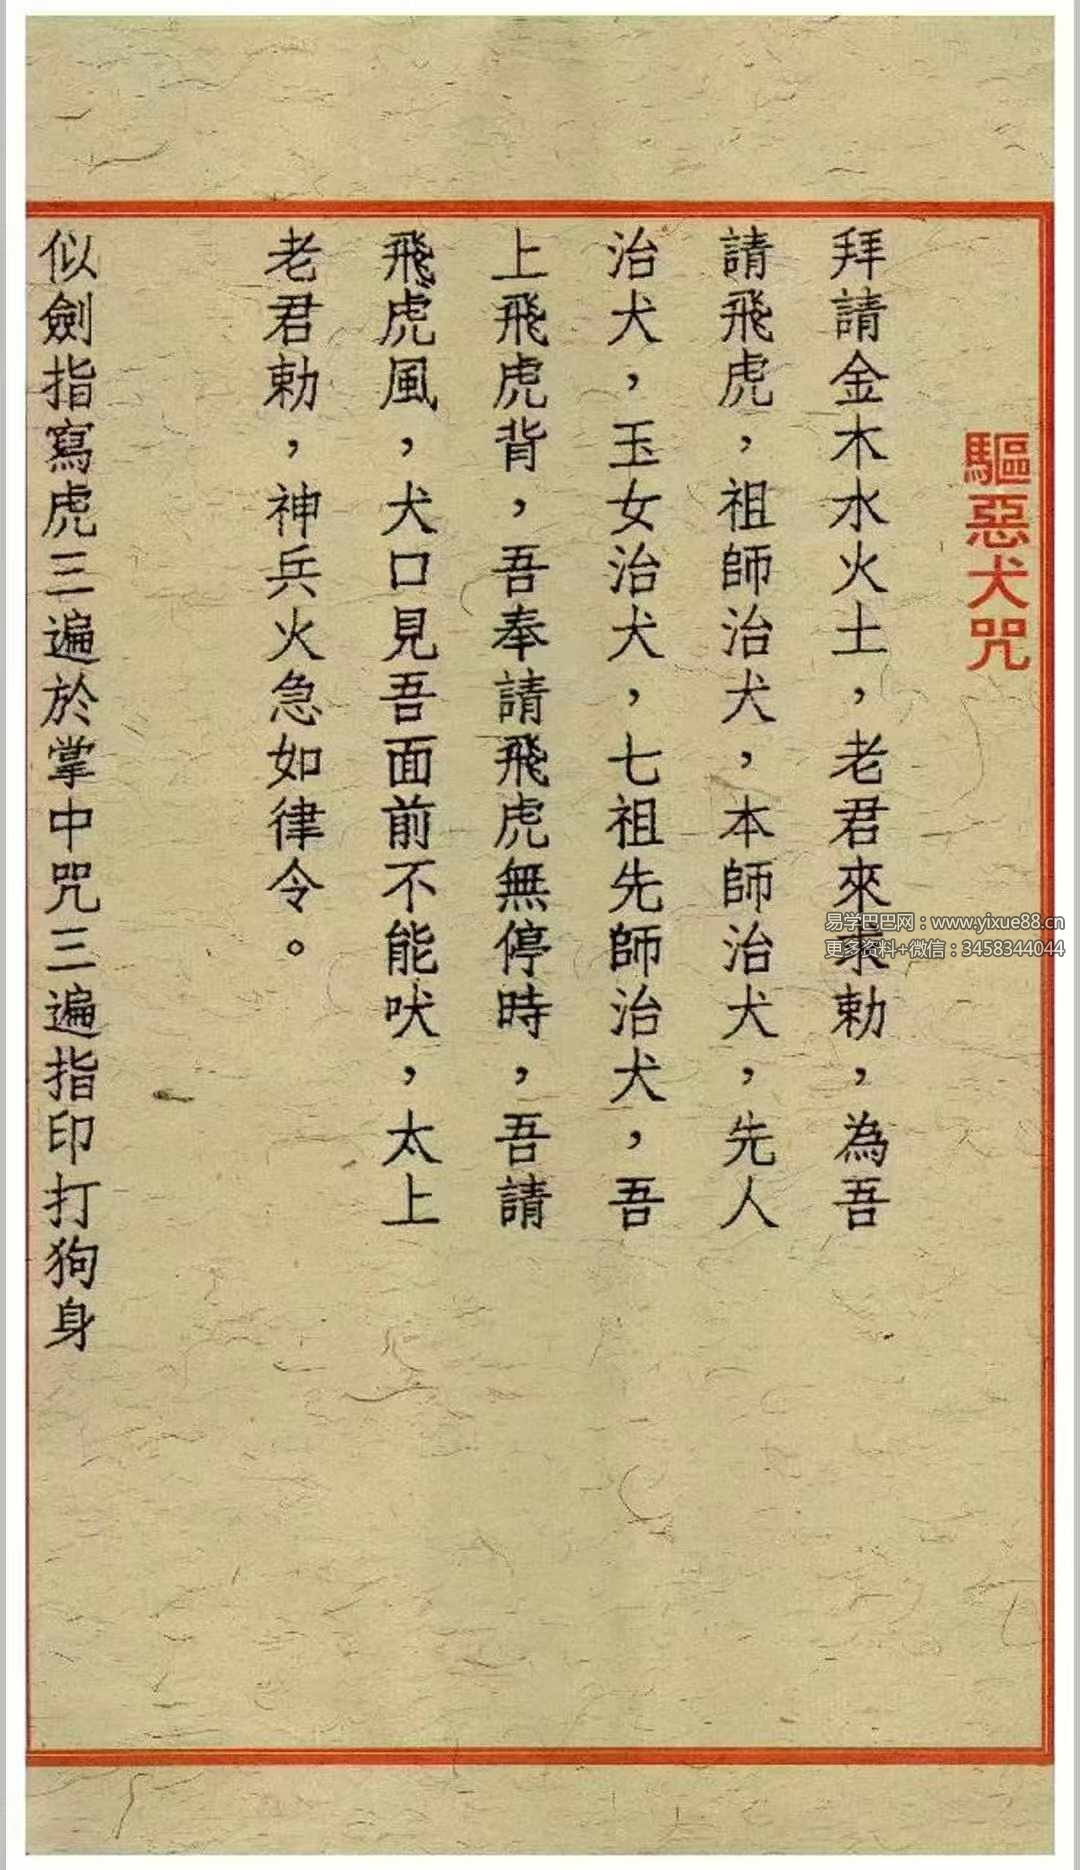 驅惡犬咒
拜請金木水火土，老君來乘勅，為吾
請飛虎，祖師治犬，本師治犬，先人
治犬，玉女治犬，七祖先師治犬，吾
上飛虎背，吾奉請飛虎無停時，吾請
飛虎風，犬口見吾面前不能吠，太上
老君勅，神兵火急如律令。
似劍指寫虎三遍於掌中咒三遍指印打狗身
易学巴巴网：www.yixue88.cn
更多资料+微信：3458344044